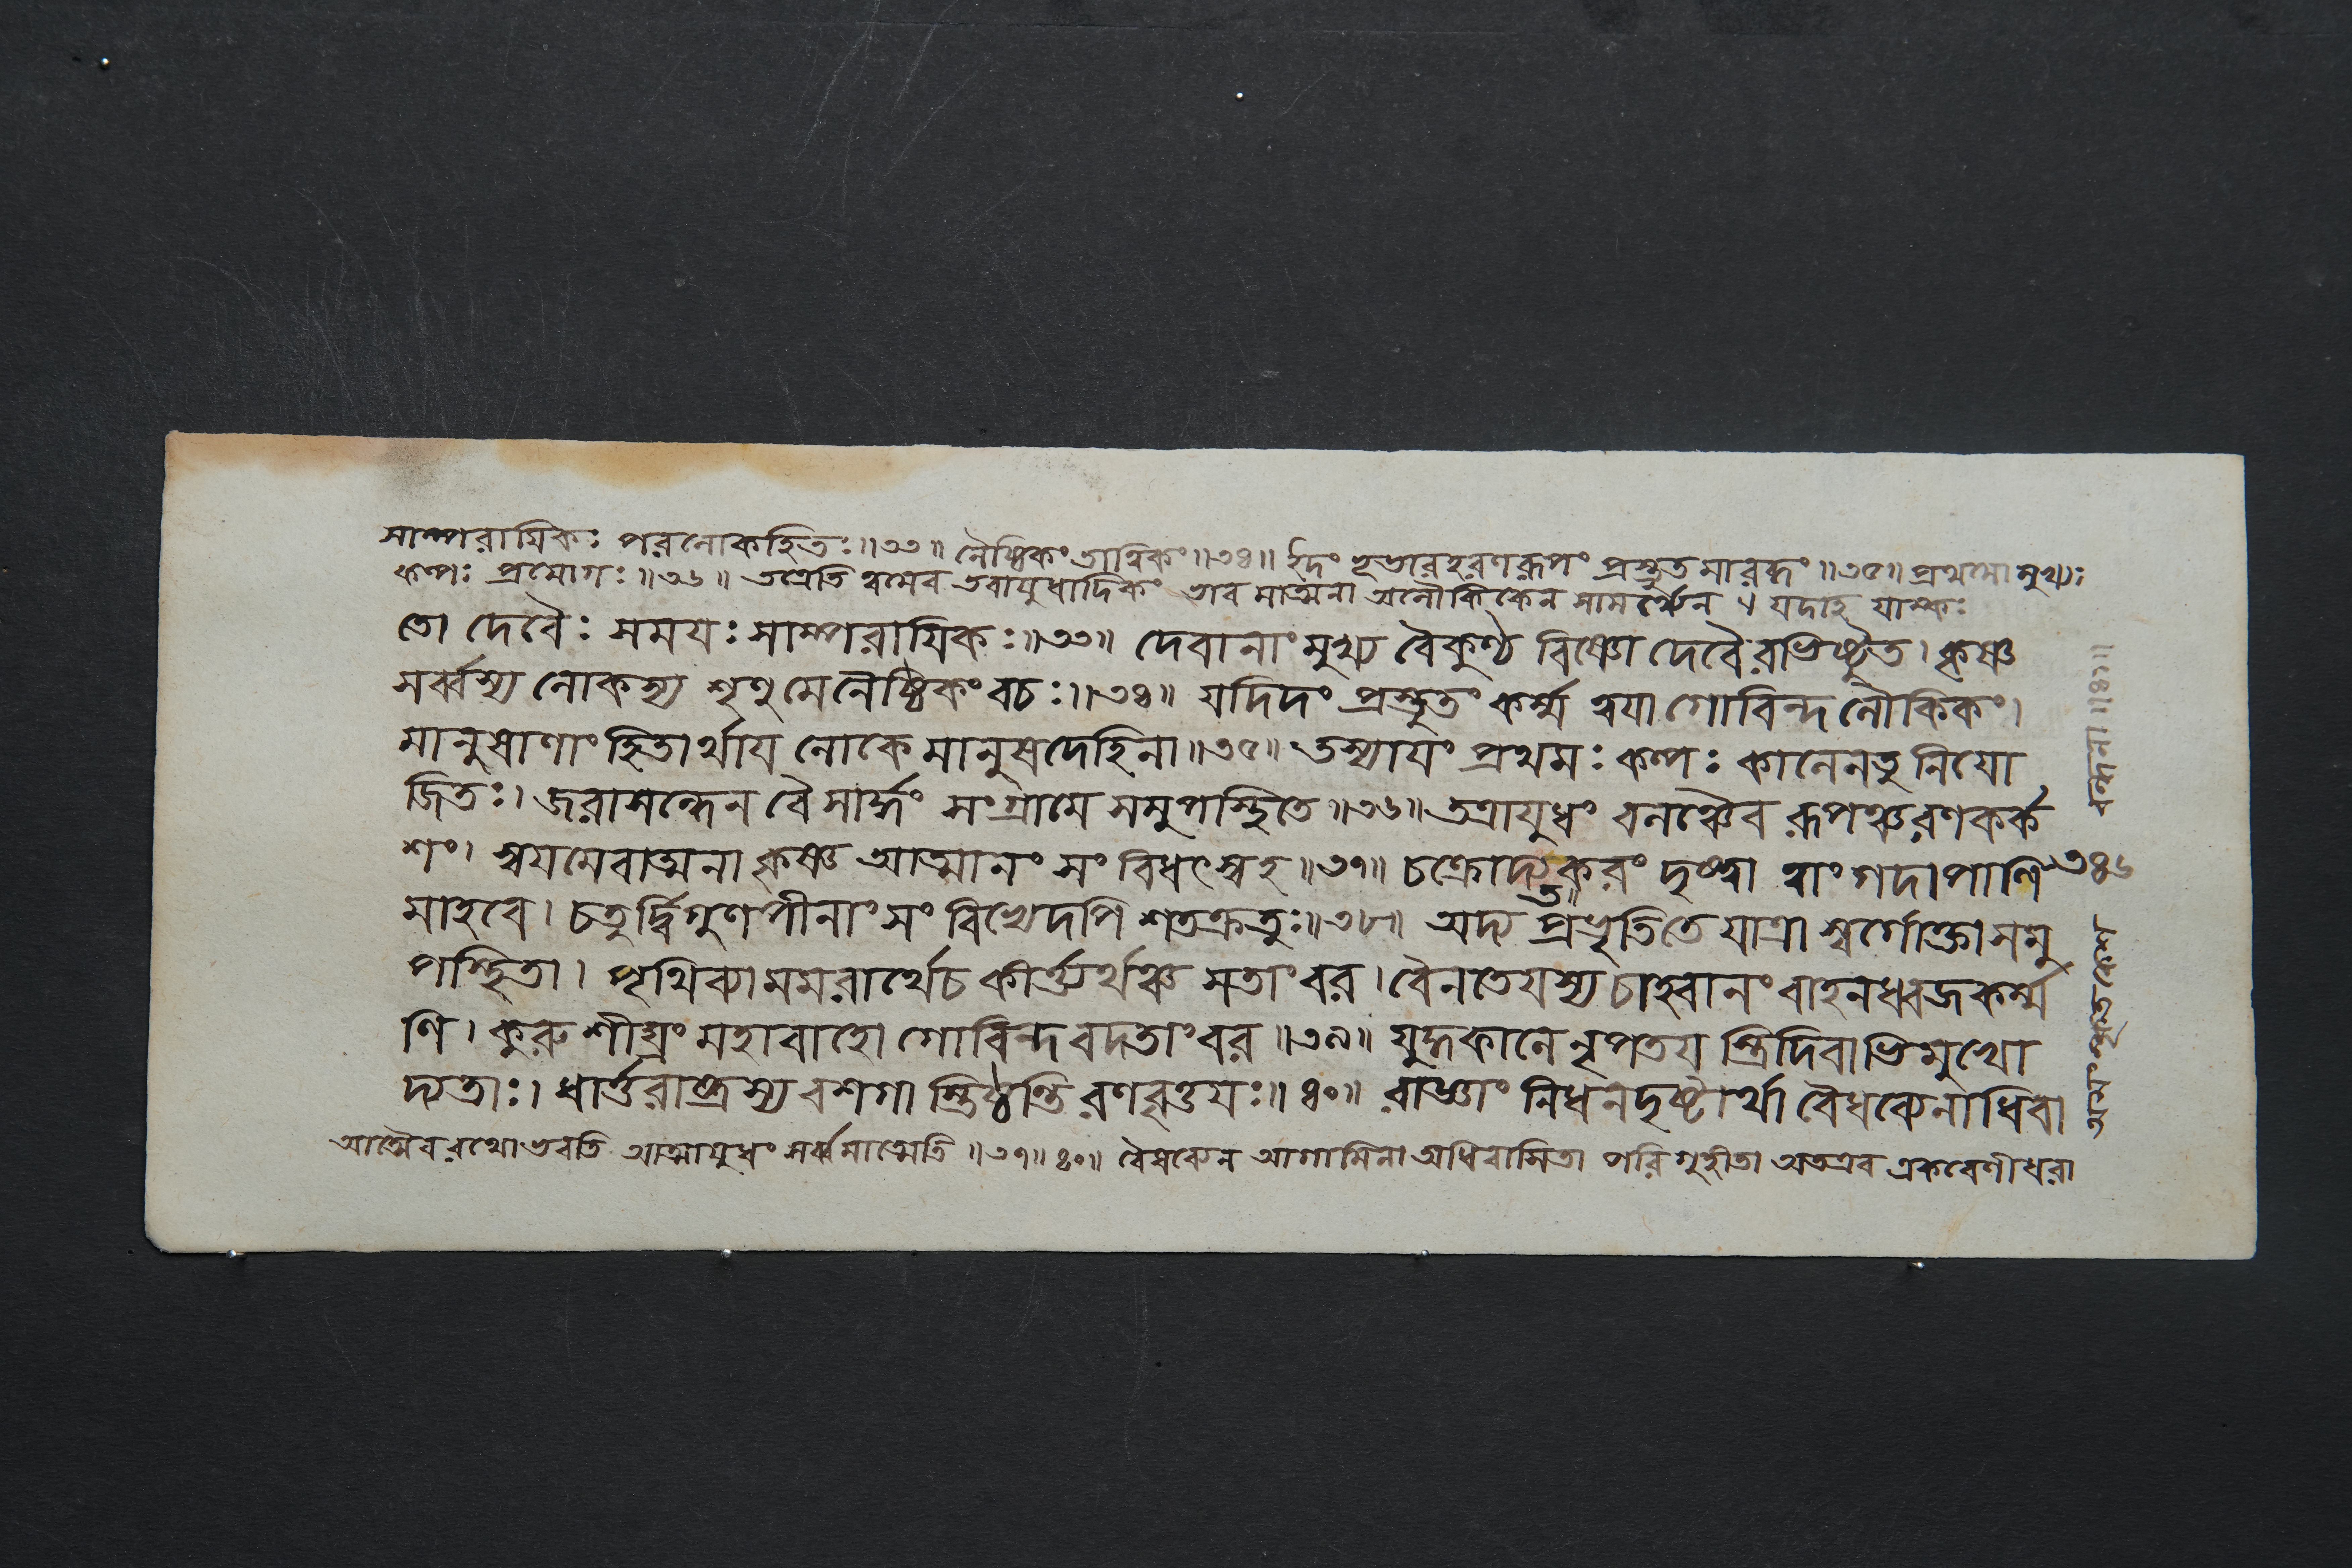 সাম্পরায়িকঃ পরলোকহিতঃ॥৩৩॥ নৈষ্ঠিকং তাত্বিকং॥৩৪॥ ইদং ভূভারহরণরূপং প্রস্তুতমারব্ধং॥৩৫॥ প্রথমো মুখ্যঃ
কল্পঃ প্রয়োগঃ॥৩৬॥ তত্রেতি ত্বমেব তবায়ুধাদিকং ভাব মাত্মনা অলৌকিকেন সামর্থ্যেন। যদাহ যাস্কঃ
তো দেবৈঃ সময়ঃ সাম্পরায়িকঃ॥৩৩॥ দেবানাং মুখ্য বৈকুণ্ঠ বিষ্ণো দেবৈরভিষ্টুত। কৃষ্ণ
সর্ব্বস্য লোকস্য শৃণু মে নৈষ্ঠিকং বচঃ॥৩৪॥ যদিদং প্রস্তুতং কর্ম্ম ত্বয়া গোবিন্দ লৌকিকং।
মানুষাণাং হিতার্থায় লোকে মানুষদেহিনা॥৩৫॥ তস্যায়ং প্রথমঃ কল্পঃ কালেনতু নিয়ো
জিতঃ। জরাসন্ধেন বৈ সার্দ্ধং সংগ্রামে সমুপস্থিতে॥৩৬॥ তত্রায়ুধং বলঞ্চৈব রূপঞ্চ রণকর্ক
শং। স্বয়মেবাত্মনা কৃষ্ণ আত্মানং সং বিধৎস্বহ॥৩৭॥ চক্রোদ্যতকরং দৃষ্ট্বা ত্বাং গদাপাণি ৩৪৬
মাহবে। চতুর্দ্বিগুণপীনাংসং বিভ্যেদপি শতক্রতুঃ॥৩৮॥ অদ্য প্রভৃতিতে যাত্রা স্বর্গোক্তা সমু
পস্থিতা। পৃথিব্যামমরার্থেচ কীর্ত্ত্যর্থঞ্চ সতাং বর। বৈনতেয়স্য চাহ্বানং বাহনধ্বজকর্ম্ম
ণি। কুরু শীঘ্রং মহাবাহো গোবিন্দ বদতাং বর॥৩৯॥ যুদ্ধকালে নৃপতয় স্ত্রিদিবাভিমুখো
দ্যতাঃ। ধার্ত্তরাষ্ট্রস্য বশগা স্তিষ্ঠন্তি রণবৃত্তয়ঃ॥৪০॥ রাজ্ঞাং নিধনদৃষ্টার্থা বৈধব্যেনাধিবা
আত্মৈব রথো ভবতি আত্মায়ুধং সর্ব্বমাত্মেতি॥৩৭॥৪০॥ বৈধব্যেন আগামিনা অধিবাসিতা পরি গৃহীতা অতএব একবেণীধরা